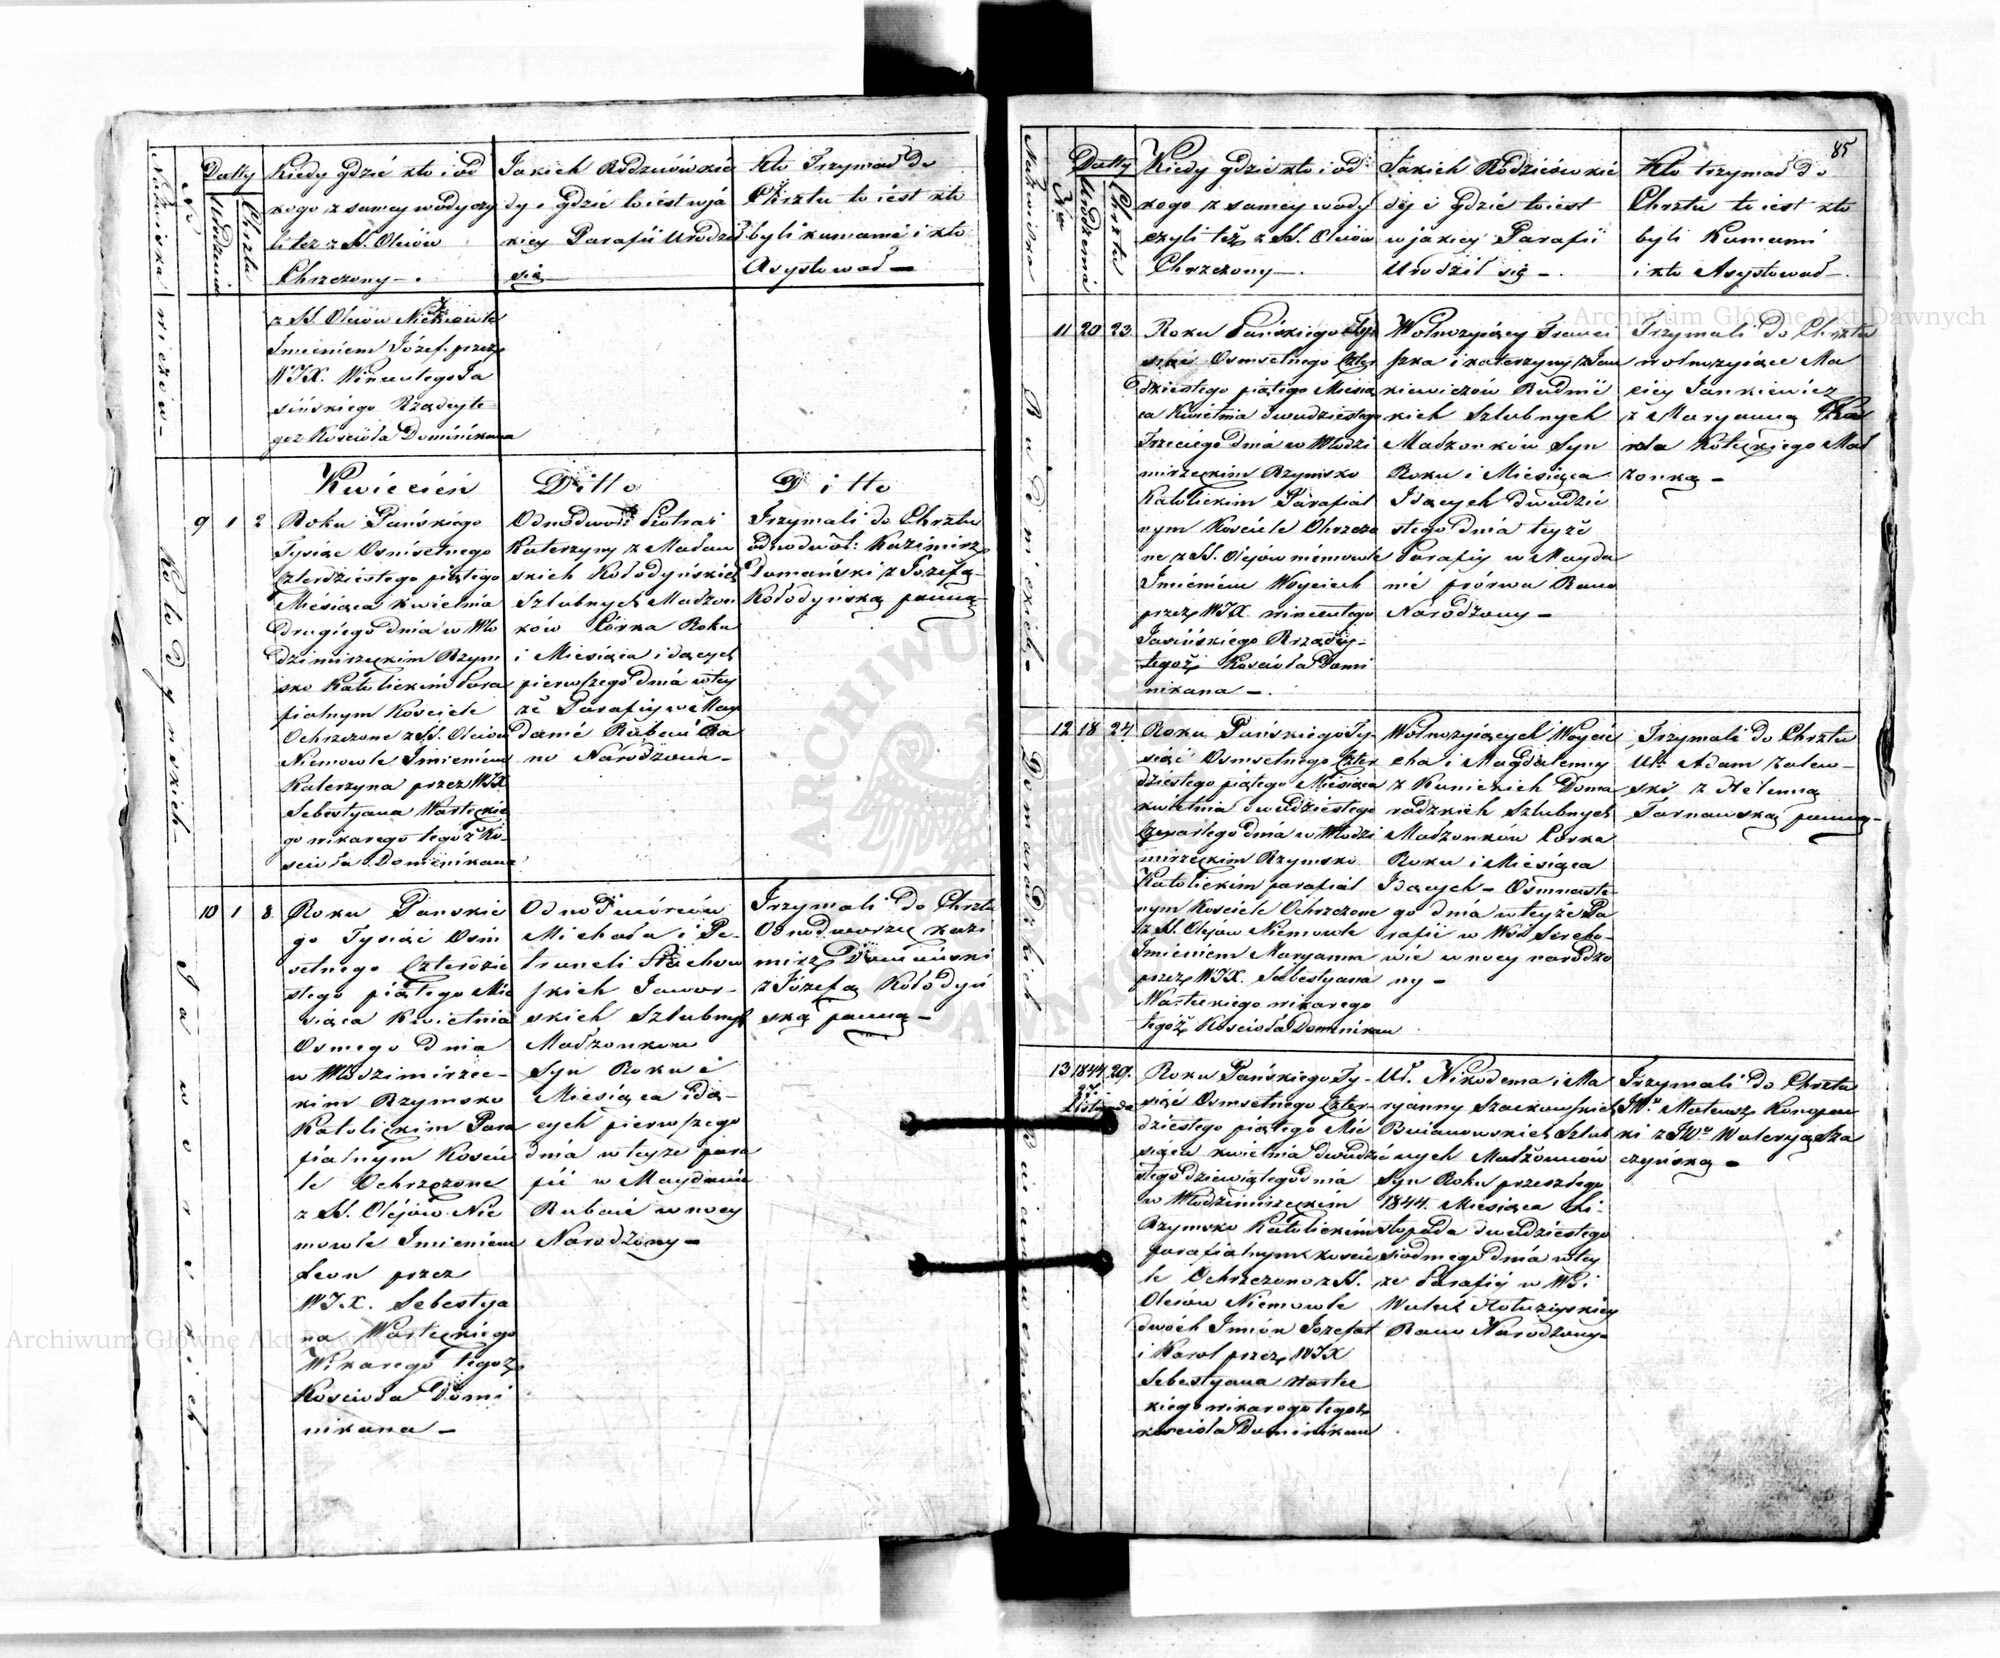 Datty
Kiedy gdzie kto i od
kogo z samey wody czy
li też z SS. Oleiów
Chrzczony —
Jakich Rodziców kie
dy i gdzie to iest w ja
kiey Parafii Urodził
się —
Kto Trzymał do
Chrztu to iest kto
byli kumami i kto
Asystował —
Nazwiska
No
Urodzenia
Chrztu
z SS. Oleiów Niemowle
Imieniem Józef przez
WJX. Wincentego Ja
sińskiego Rządcy te
goż Kościoła Dominikana
Kwiecień
Ditto
Ditto
Kołodyńskich
9 1 2
Roku Pańskiego
Tysiąc Osmsetnego
Czterdziestego piątego
Miesiąca Kwietnia
Drugiego dnia w Wło
dzimirzeckim Rzym
sko Katolickim Para
fialnym Kosciele
Ochrzczone z SS. Oleiów
Niemowle Imieniem
Katerzyna przez WJX
Sebestyana Warteckie
go wikarego tegoż Ko
scioła Dominikana
Katerzyny z Madaw
skich Kołodyńskich
Szlubnych Madżon
ków Córka Roku
i Miesiąca idących
pierwszego dnia w tey
że Parafiy w May
danie Rubeni Ra
no Narodzona —
Trzymali do Chrztu
odnodwor: Kazimirz
Domański z Józefą
Kołodyńską panną
Jaworskich
10 1 8
Roku Panskie
go Tysiąc Osm
setnego Czterdzie
stego piątego Mie
siąca Kwietnia
Osmego Dnia
w Włodzimirzec-
kim Rzymsko
Katolickim Para
fialnym Koscie
le Ochrzczone
z SS. Olejów Nie
mowle Imieniem
Leon przez
WJX. Sebestya
na Warteckiego
Wikarego tegoż
Kościoła Domi
nikana —
Odnodworców
Michała i Pe-
truneli Stachow
skich Jawor-
skich Szlubnych
Madżonkow
Syn Roku i
Miesiąca idą-
cych pierwszego
dnia w teyże para
fii w Maydanie
Rubeni w nocy
Narodzony —
Trzymali do Chrztu
Odnodworzec Kazi
mirz Domański
z Józefą Kołodyń
ską panną —
85
Datty
Kiedy gdzie kto i od
kogo z samey wody
czyli też z SS. Oleiów
Chrzczony —
Jakich Rodziców kie
dy i gdzie to iest
w jakiey Parafii
Urodził się —
Kto trzymał do
Chrztu to iest kto
byli Kumami
i kto Asystował —
Nazwiska
No
Urodzenia
Chrztu
Rudnickich
11 20 23
Roku Pańskiego Ty
siąc Osmsetnego Czter
dziestego piątego Miesią
ca Kwietnia dwudziestego
Trzeciego dnia w Włodzi
mirzeckim Rzymsko
Katolickim Parafial
nym Kosciele Ochrzczo
ne z SS. Olejów niemowle
Imieniem Woyciech
przez WJX. wincentego
Jasińskiego Rządcy
tegoż Kościoła Domi
nikana —
Wolnożyiący Franci
szka i Katerzyny z Jan
kiewiczów Rudnic
kich Szlubnych
Madżonków Syn
Roku i Miesiąca
Idących dwudzie
stego dnia teyże
Parafiy w Mayda
nie Rano
Narodzony —
Trzymali do Chrztu
wolnożyiące Ma
ciey Jankiewicz
z Maryanną Ka
rola Kołeckiego Mał
żonką —
Domaradzkich
12 18 24
Roku Pańskiego Ty-
siąc Osmsetnego Czter
dziestego piątego Miesiąca
kwietnia dwudziestego
Czwartego dnia w Włodzi
mirzeckim Rzymsko
Katolickim parafial
nym Kosciele Ochrzczone
z SS. Olejów Niemowle
Imieniem Maryanna
przez WJX. Sebestyana
Warteckiego wikarego
tegoż Kościoła Dominikan
Wolnożyiących Woycie
cha i Magdaleny
z Kunickich Doma
radzkich Szlubnych
Madżonków Corka
Roku i Miesiąca
Idących — Osmnaste
go dnia w teyże Pa
rafii w Wsi Serecho-
wie w nocy narodzo
ny —
Trzymali do Chrztu
Uł. Adam Zalew-
ski z Helenną
Tarnawską panną
13 1844 29.
27
Listopada
Roku Pańskiego Ty-
siąc Osmsetnego Czter-
dziestego piątego Mie
siąca kwietnia dwudzie
stego dziewiątego dnia
w Włodzimirzeckim
Rzymsko Katolickim
parafialnym koscie
le Ochrzczono z SS.
Oleiów Niemowle
dwóch Imión Jozefat
i Karol przez WJX
Sebestyana Wartec
kiego wikarego tegoż
kościoła Dominikan
Uł. Nikodema i Ma
ryanny Szackowskich
Szlub
nych Małżonków
Syn Roku przeszłego
1844. Miesiąca Li-
stopada dwudziestego
siodmego dnia w tey
że Parafiy w Wsi
Rano Narodzony
Trzymali do Chrztu
JW. Mateusz Konopac
ki z JW. Waleryą Sza
czyńską —
Archiwum Główne Akt Dawnych
Archiwum Główne Akt Dawnych